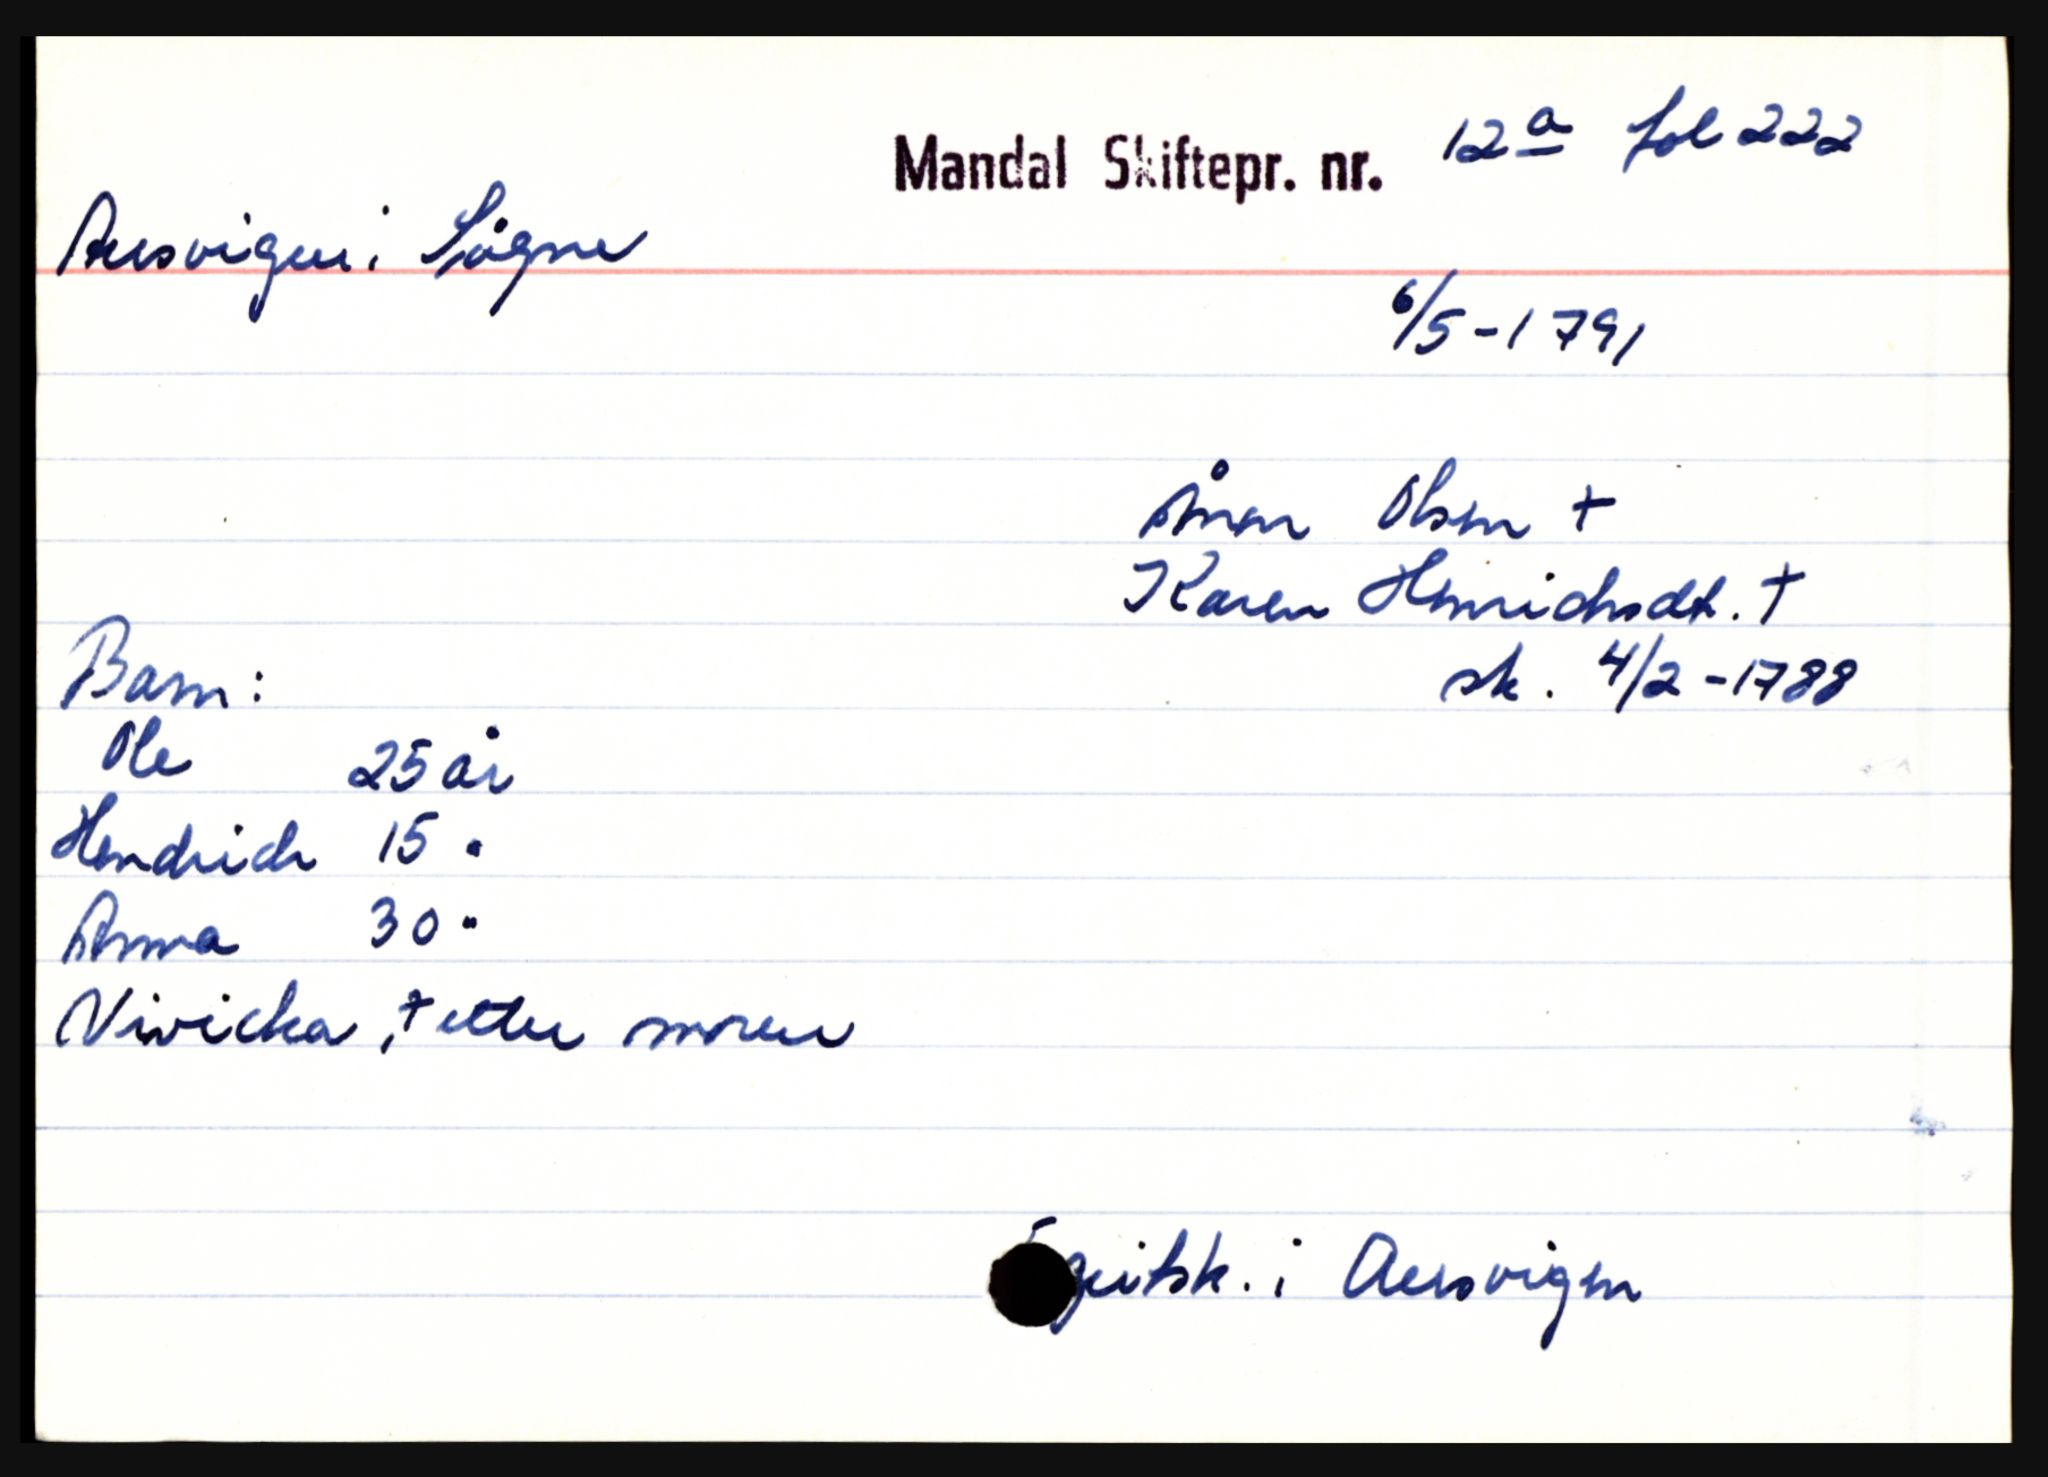 Mandal Skiftepr. nr. 12a fol 222
Aersvigen i Søgne
6/5-1791
Ånen Olsen †
Karen Henrichsdt. †
sk. 4/2-1788
Barn:
Ole 25 år
Hendrich 15 "
Anna 30 "
Vivicka, † etter moren
i Aersvigen